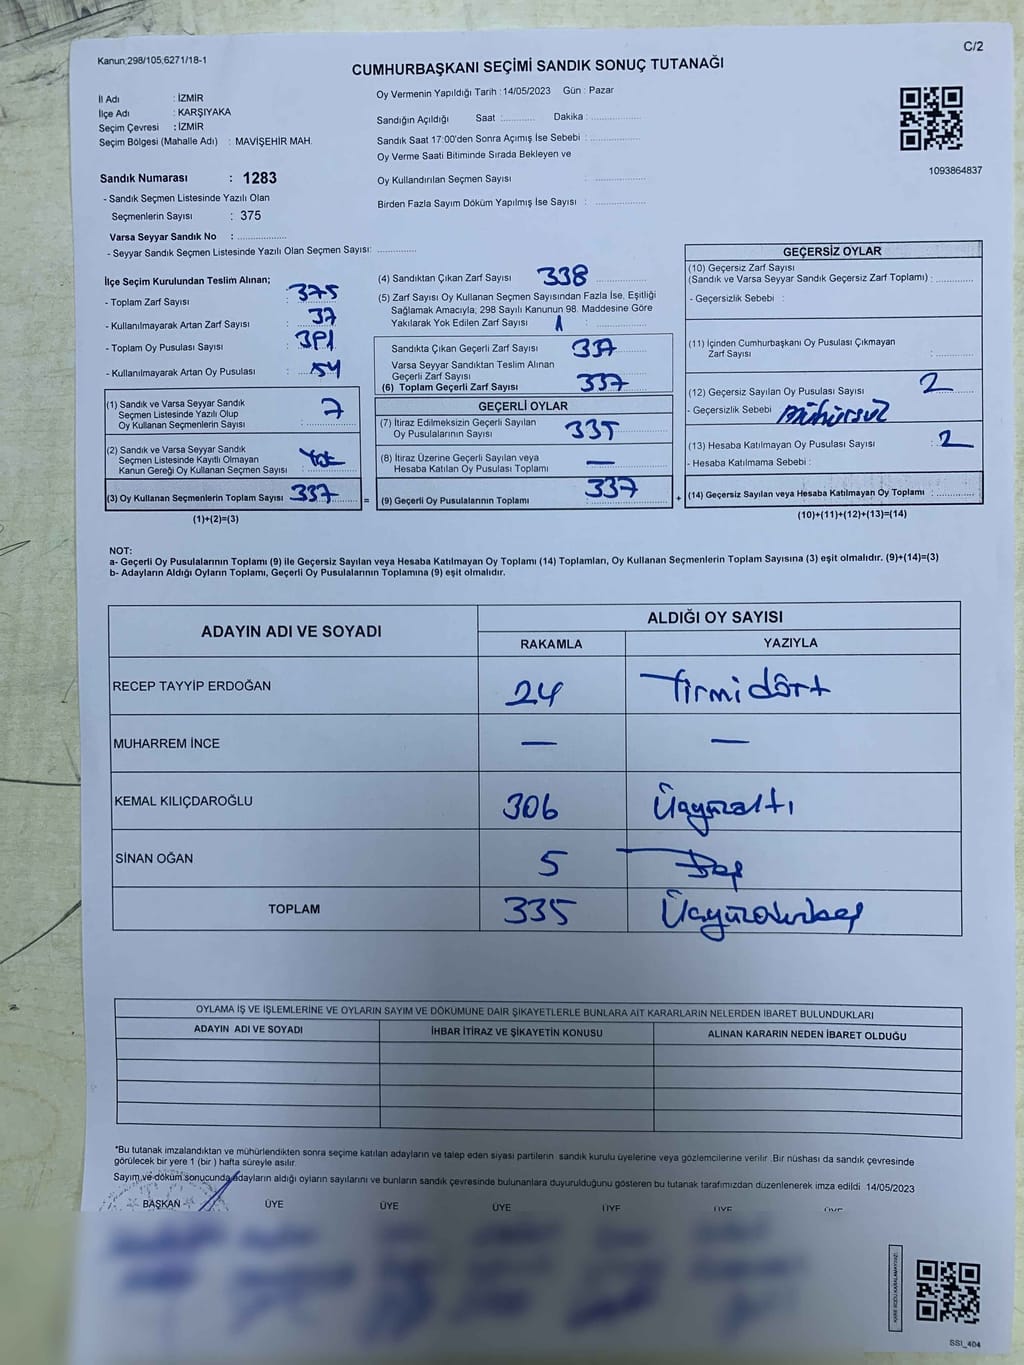 Kanun;298/105;6271/18-1
C/2
CUMHURBAŞKANI SEÇİMİ SANDIK SONUÇ TUTANAĞI
İl Adı : İZMİR
İlçe Adı : KARŞIYAKA
Seçim Çevresi : İZMİR
Seçim Bölgesi (Mahalle Adı) : MAVİŞEHİR MAH.
Oy Vermenin Yapıldığı Tarih : 14/05/2023 Gün : Pazar
Sandığın Açıldığı Saat :............ Dakika :................
Sandık Saat 17:00'den Sonra Açımış İse Sebebi :................
Oy Verme Saati Bitiminde Sırada Bekleyen ve
Oy Kullandırılan Seçmen Sayısı :................
Birden Fazla Sayım Döküm Yapılmış İse Sayısı :................
1093864837
Sandık Numarası : 1283
- Sandık Seçmen Listesinde Yazılı Olan
Seçmenlerin Sayısı : 375
Varsa Seyyar Sandık No :................
- Seyyar Sandık Seçmen Listesinde Yazılı Olan Seçmen Sayısı: ............
İlçe Seçim Kurulundan Teslim Alınan;
- Toplam Zarf Sayısı : 375
- Kullanılmayarak Artan Zarf Sayısı : 37
- Toplam Oy Pusulası Sayısı : 391
- Kullanılmayarak Artan Oy Pusulası : 54
(1) Sandık ve Varsa Seyyar Sandık
Seçmen Listesinde Yazılı Olup
Oy Kullanan Seçmenlerin Sayısı : 7
(2) Sandık ve Varsa Seyyar Sandık
Seçmen Listesinde Kayıtlı Olmayan
Kanun Gereği Oy Kullanan Seçmen Sayısı : Yok
(3) Oy Kullanan Seçmenlerin Toplam Sayısı : 337 =
(1)+(2)=(3)
(4) Sandıktan Çıkan Zarf Sayısı 338
(5) Zarf Sayısı Oy Kullanan Seçmen Sayısından Fazla İse, Eşitliği
Sağlamak Amacıyla; 298 Sayılı Kanunun 98. Maddesine Göre
Yakılarak Yok Edilen Zarf Sayısı : 1
Sandıkta Çıkan Geçerli Zarf Sayısı : 337
Varsa Seyyar Sandıktan Teslim Alınan
Geçerli Zarf Sayısı
(6) Toplam Geçerli Zarf Sayısı : 337
GEÇERLİ OYLAR
(7) İtiraz Edilmeksizin Geçerli Sayılan
Oy Pusulalarının Sayısı : 335
(8) İtiraz Üzerine Geçerli Sayılan veya
Hesaba Katılan Oy Pusulası Toplamı : —
(9) Geçerli Oy Pusulalarının Toplamı : 337 +
GEÇERSİZ OYLAR
(10) Geçersiz Zarf Sayısı
(Sandık ve Varsa Seyyar Sandık Geçersiz Zarf Toplamı) :............
- Geçersizlik Sebebi :
(11) İçinden Cumhurbaşkanı Oy Pusulası Çıkmayan
Zarf Sayısı :............
(12) Geçersiz Sayılan Oy Pusulası Sayısı : 2
- Geçersizlik Sebebi : Mühürsüz
(13) Hesaba Katılmayan Oy Pusulası Sayısı : 2
- Hesaba Katılmama Sebebi :
(14) Geçersiz Sayılan veya Hesaba Katılmayan Oy Toplamı :............
(10)+(11)+(12)+(13)=(14)
NOT:
a- Geçerli Oy Pusulalarının Toplamı (9) ile Geçersiz Sayılan veya Hesaba Katılmayan Oy Toplamı (14) Toplamları, Oy Kullanan Seçmenlerin Toplam Sayısına (3) eşit olmalıdır. (9)+(14)=(3)
b- Adayların Aldığı Oyların Toplamı, Geçerli Oy Pusulalarının Toplamına (9) eşit olmalıdır.
ADAYIN ADI VE SOYADI ALDIĞI OY SAYISI
RAKAMLA YAZIYLA
RECEP TAYYİP ERDOĞAN 24 Yirmidört
MUHARREM İNCE — —
KEMAL KILIÇDAROĞLU 306 Üçyüzaltı
SİNAN OĞAN 5 Beş
TOPLAM 335 Üçyüzotuzbeş
OYLAMA İŞ VE İŞLEMLERİNE VE OYLARIN SAYIM VE DÖKÜMÜNE DAİR ŞİKAYETLERLE BUNLARA AİT KARARLARIN NELERDEN İBARET BULUNDUKLARI
ADAYIN ADI VE SOYADI İHBAR İTİRAZ VE ŞİKAYETİN KONUSU ALINAN KARARIN NEDEN İBARET OLDUĞU
*Bu tutanak imzalandıktan ve mühürlendikten sonra seçime katılan adayların ve talep eden siyasi partilerin sandık kurulu üyelerine veya gözlemcilerine verilir .Bir nüshası da sandık çevresinde
görülecek bir yere 1 (bir ) hafta süreyle asılır.
Sayım ve döküm sonucunda adayların aldığı oyların sayılarını ve bunların sandık çevresinde bulunanlara duyurulduğunu gösteren bu tutanak tarafımızdan düzenlenerek imza edildi. 14/05/2023
BAŞKAN ÜYE ÜYE ÜYE ÜYE ÜYE ÜYE
SSI_404